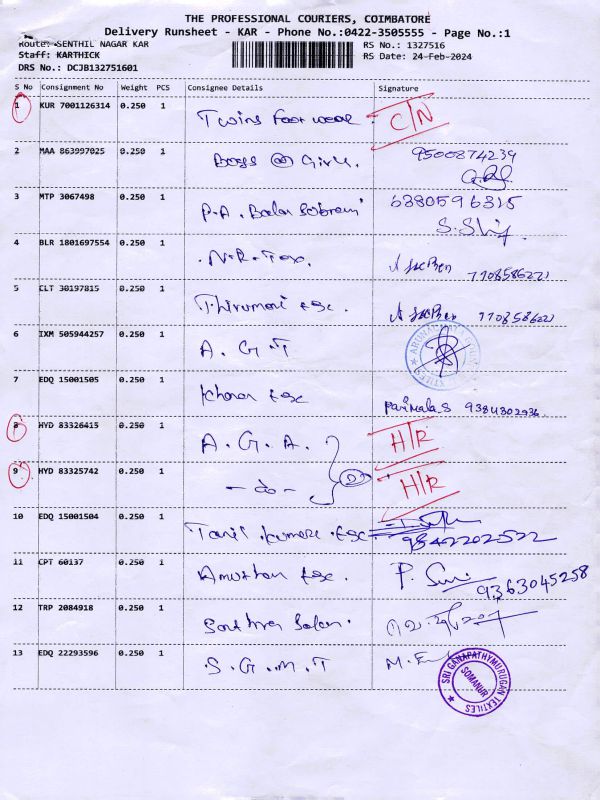 THE PROFESSIONAL COURIERS, COIMBATORE
Delivery Runsheet - KAR - Phone No.:0422-3505555 - Page No.:1
Route: SENTHIL NAGAR KAR RS No.: 1327516
Staff: KARTHICK RS Date: 24-Feb-2024
DRS No.: DCJB132751601
S No Consignment No Weight PCS Consignee Details Signature
1 KUR 7001126314 0.250 1 Twins Foot wear C/N
2 MAA 863997025 0.250 1 Boys @ Girls. 9500874239
3 MTP 3067498 0.250 1 P.A. 6380596315
4 BLR 1801697554 0.250 1 N.R. Tex. 7708586221
5 CLT 30197815 0.250 1 Esc. 7708586221
6 IXM 505944257 0.250 1 A. G. T
7 EDQ 15001505 0.250 1 Esc Parimala.S
8 HYD 83326415 0.250 1 A. G. A. H/R
9 HYD 83325742 0.250 1 - do - H/R
10 EDQ 15001504 0.250 1 Esc.
11 CPT 60137 0.250 1 Esc. 9363045258
12 TRP 2084918 0.250 1
13 EDQ 22293596 0.250 1 S. G. M. T
SRI GANAPATHYMURUGAN TEXTILES
SOMANUR